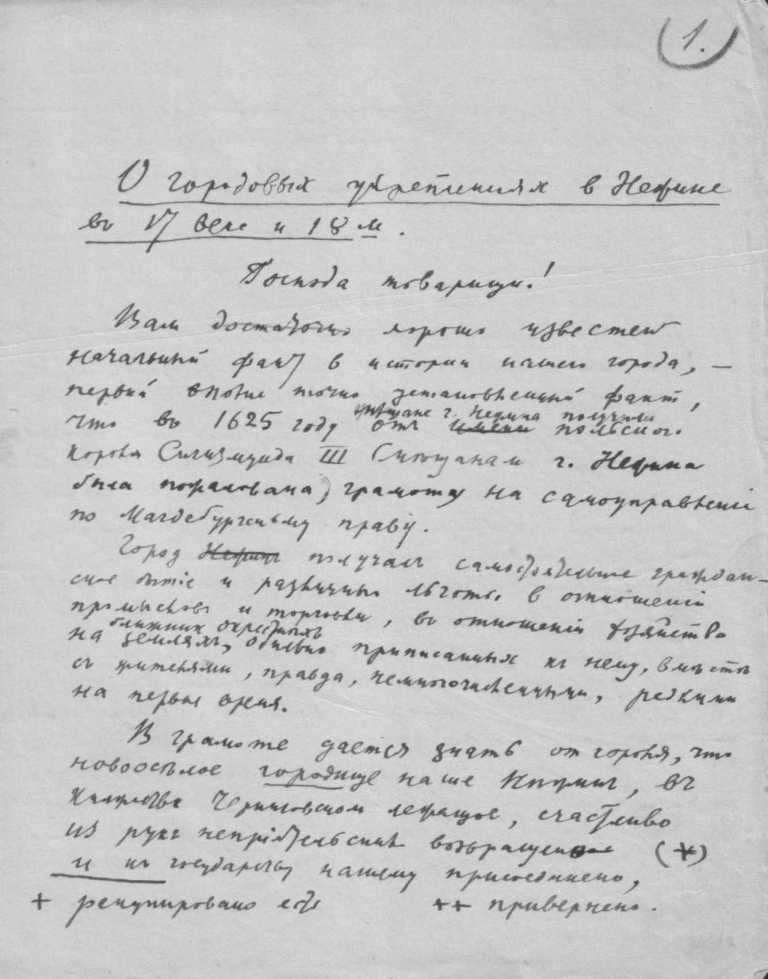 1.
О городовых укреплениях в Нежине
во 17 веке и 18 м.
Господа товарищи!
Вам достаточно хорошо известен
начальный факт в истории нашего города, —
первый вполне точно установленный факт,
что во 1625 году мещане г. Нежина получили
от имени польского
короля Сигизмунда III г. Нежина
была пожалована) грамоту на самоуправленіе
по Магдебургскому праву.
Город Нежин получает самостоятельное граждан-
ское бытіе и различные льготы в отношеніи
промыслов и торговли, во отношеніи хозяйства
ближних окрестных
на землях, приписанных к нему, вместе
съ жителями, правда, немногочисленными, редкими
на первое время.
В грамоте дается знать от короля, что
новооселое городище наше Нѣжин, въ
Княжестве Черниговском лежащое, счастливо
из рукъ непріятельских возвращено (+)
и къ государству нашему присоединено,
+ рекуперировано ++ привернено.